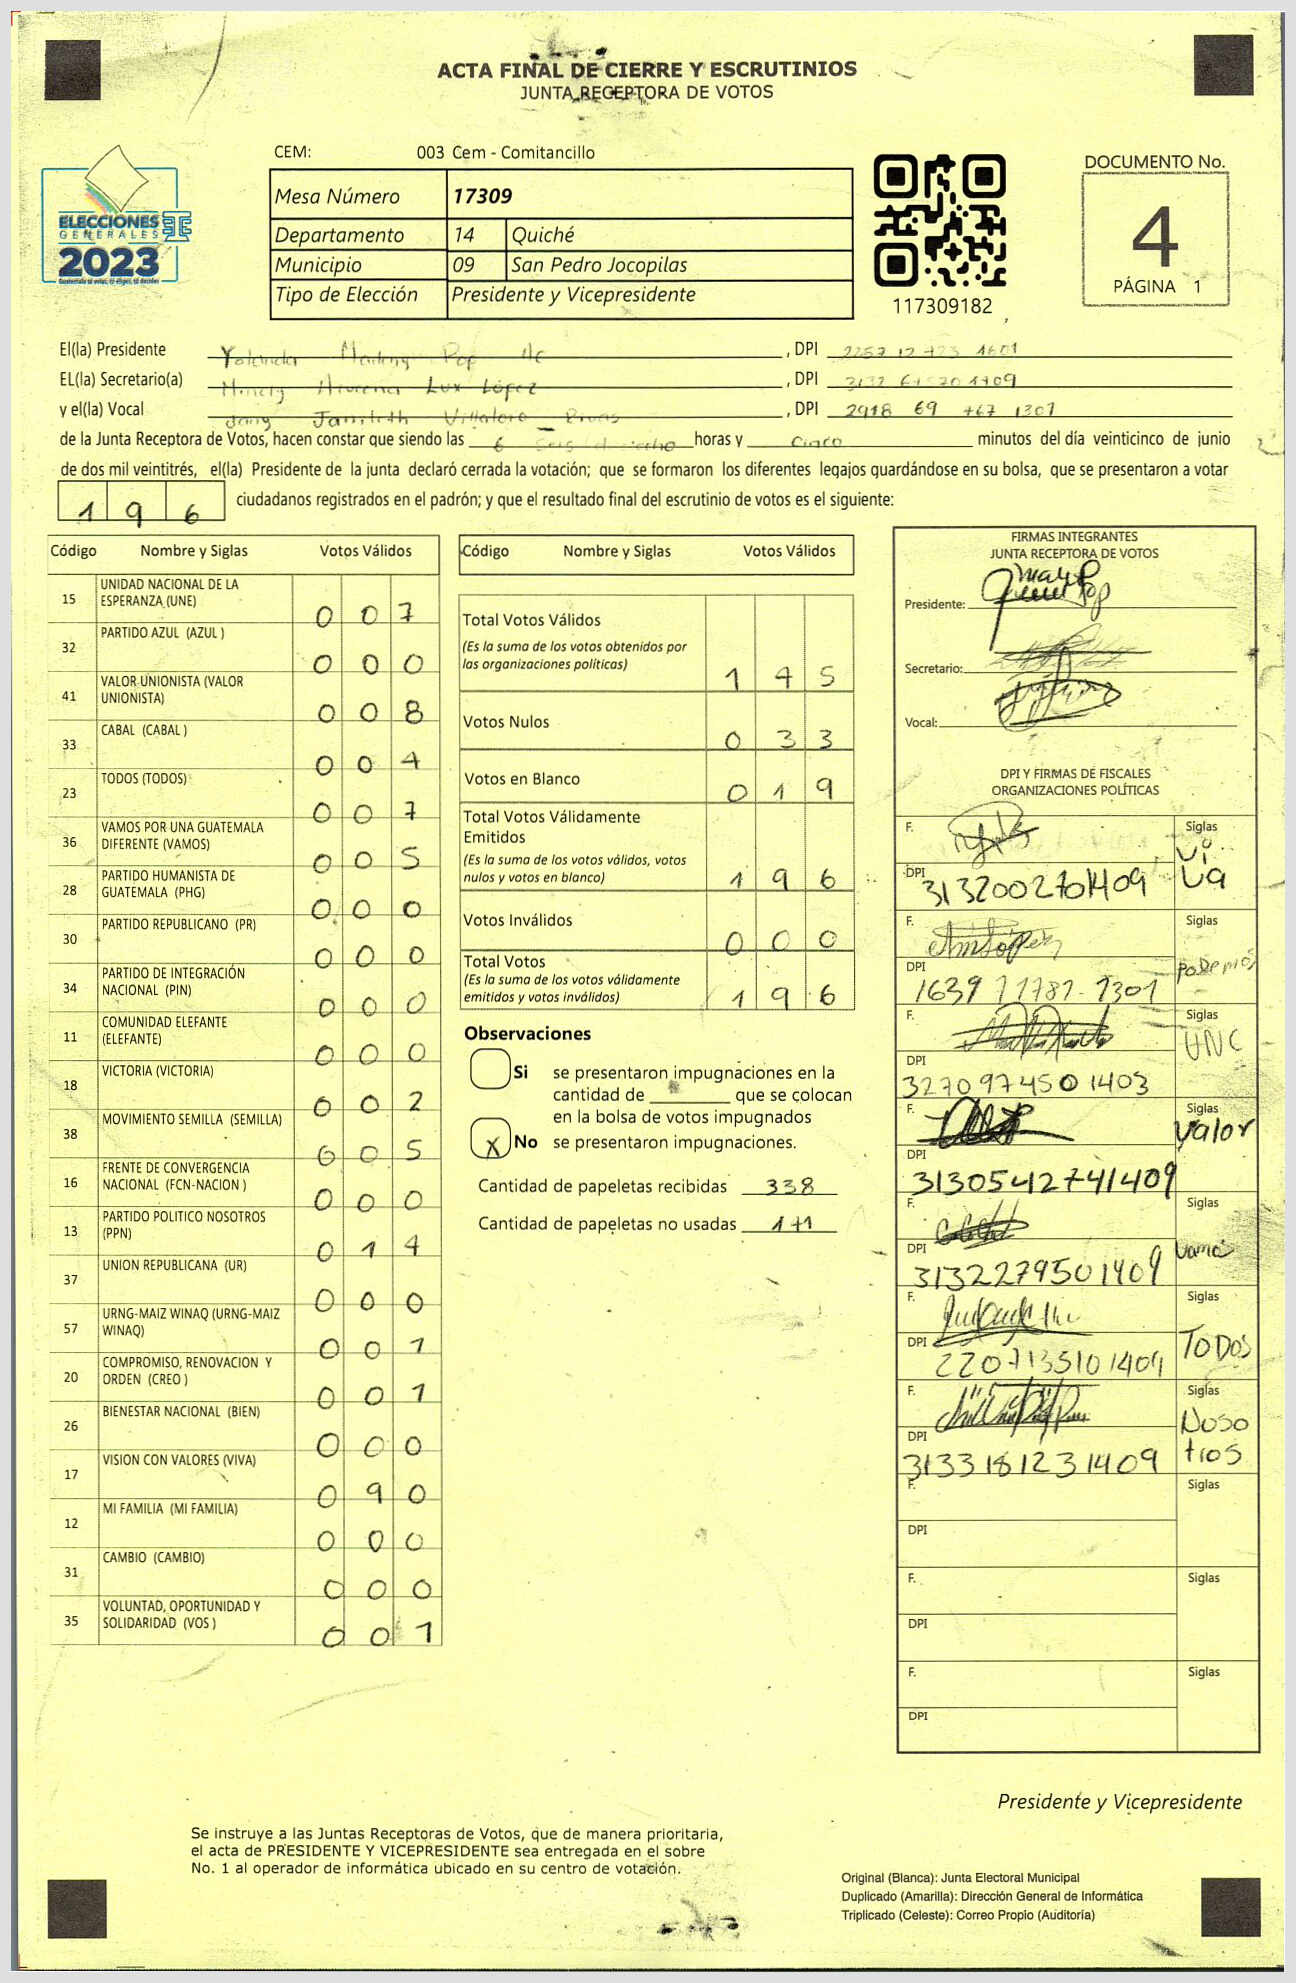 ACTA FINAL DE CIERRE Y ESCRUTINIOS
JUNTA RECEPTORA DE VOTOS
CEM: 003 Cem - Comitancillo
Mesa Número 17309
Departamento 14 Quiché
Municipio 09 San Pedro Jocopilas
Tipo de Elección Presidente y Vicepresidente
ELECCIONES
GENERALES
2023
117309182
DOCUMENTO No.
4
PÁGINA 1
El(la) Presidente Yolanda Pop , DPI
EL(la) Secretario(a) Lux López , DPI
y el(la) Vocal , DPI 2918 69 767 1301
de la Junta Receptora de Votos, hacen constar que siendo las 6 horas y cinco minutos del día veinticinco de junio
de dos mil veintitrés, el(la) Presidente de la junta declaró cerrada la votación; que se formaron los diferentes legajos guardándose en su bolsa, que se presentaron a votar
1 9 6 ciudadanos registrados en el padrón; y que el resultado final del escrutinio de votos es el siguiente:
Código Nombre y Siglas Votos Válidos
15 UNIDAD NACIONAL DE LA ESPERANZA (UNE) 0 0 7
32 PARTIDO AZUL (AZUL ) 0 0 0
41 VALOR UNIONISTA (VALOR UNIONISTA) 0 0 8
33 CABAL (CABAL ) 0 0 4
23 TODOS (TODOS) 0 0 7
36 VAMOS POR UNA GUATEMALA DIFERENTE (VAMOS) 0 0 5
28 PARTIDO HUMANISTA DE GUATEMALA (PHG) 0 0 0
30 PARTIDO REPUBLICANO (PR) 0 0 0
34 PARTIDO DE INTEGRACIÓN NACIONAL (PIN) 0 0 0
11 COMUNIDAD ELEFANTE (ELEFANTE) 0 0 0
18 VICTORIA (VICTORIA) 0 0 2
38 MOVIMIENTO SEMILLA (SEMILLA) 0 0 5
16 FRENTE DE CONVERGENCIA NACIONAL (FCN-NACION ) 0 0 0
13 PARTIDO POLITICO NOSOTROS (PPN) 0 1 4
37 UNION REPUBLICANA (UR) 0 0 0
57 URNG-MAIZ WINAQ (URNG-MAIZ WINAQ) 0 0 1
20 COMPROMISO, RENOVACION Y ORDEN (CREO ) 0 0 1
26 BIENESTAR NACIONAL (BIEN) 0 0 0
17 VISION CON VALORES (VIVA) 0 9 0
12 MI FAMILIA (MI FAMILIA) 0 0 0
31 CAMBIO (CAMBIO) 0 0 0
35 VOLUNTAD, OPORTUNIDAD Y SOLIDARIDAD (VOS ) 0 0 1
Código Nombre y Siglas Votos Válidos
Total Votos Válidos
(Es la suma de los votos obtenidos por
las organizaciones políticas) 1 4 5
Votos Nulos 0 3 3
Votos en Blanco 0 1 9
Total Votos Válidamente
Emitidos
(Es la suma de los votos válidos, votos
nulos y votos en blanco) 1 9 6
Votos Inválidos 0 0 0
Total Votos
(Es la suma de los votos válidamente
emitidos y votos inválidos) 1 9 6
Observaciones
Si se presentaron impugnaciones en la
cantidad de ________ que se colocan
en la bolsa de votos impugnados
X No se presentaron impugnaciones.
Cantidad de papeletas recibidas 338
Cantidad de papeletas no usadas 171
FIRMAS INTEGRANTES
JUNTA RECEPTORA DE VOTOS
Presidente:
Secretario:
Vocal:
DPI Y FIRMAS DE FISCALES
ORGANIZACIONES POLÍTICAS
F. Siglas Vi
DPI 3132002701409 va
F. Siglas
DPI 1639 77787 1301 podemos
F. Siglas
DPI 3270974501403 UNC
F. Siglas
DPI 3130542741409 Valor
F. Siglas
DPI 3132279501409 vamos
F. Siglas
DPI 2207135101409 TODOS
F. Siglas Noso
DPI 3133181231409 tros
F. Siglas
DPI
F. Siglas
DPI
F. Siglas
DPI
Presidente y Vicepresidente
Se instruye a las Juntas Receptoras de Votos, que de manera prioritaria,
el acta de PRESIDENTE Y VICEPRESIDENTE sea entregada en el sobre
No. 1 al operador de informática ubicado en su centro de votación.
Original (Blanca): Junta Electoral Municipal
Duplicado (Amarilla): Dirección General de Informática
Triplicado (Celeste): Correo Propio (Auditoría)